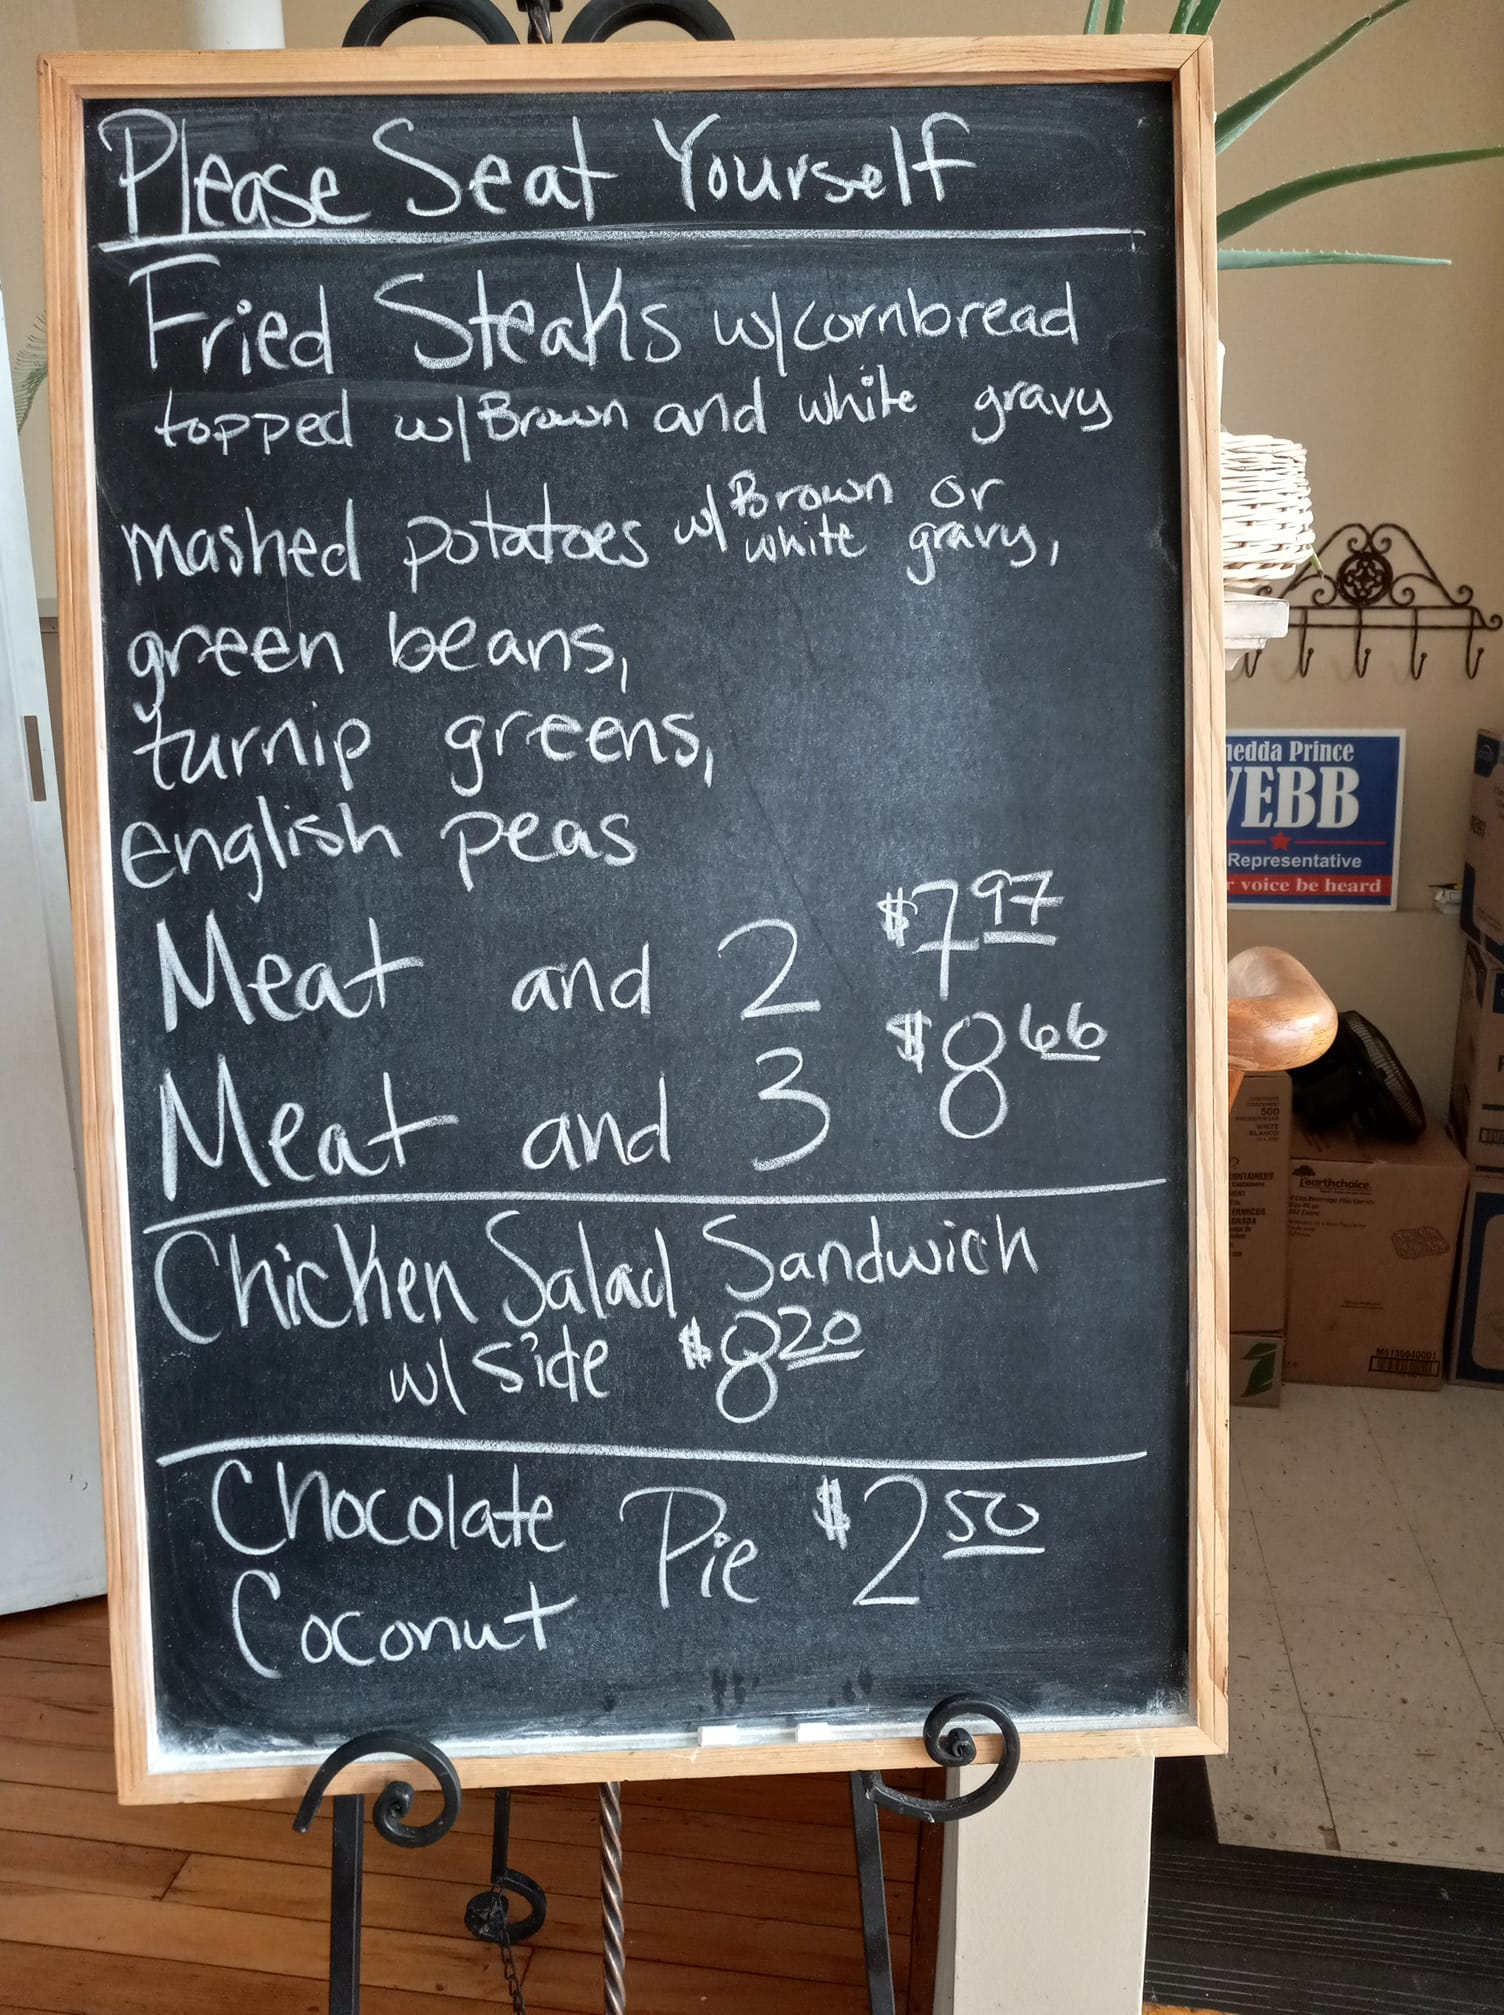 Please Seat Yourself
Fried Steaks w/cornbread
topped w/Brown and white gravy
mashed potatoes w/ Brown or
white gravy,
green beans,
turnip greens,
english peas
Meat and 2 $7.97
Meat and 3 $8.66
Chicken Salad Sandwich
w/ side $8.20
Chocolate Pie $2.50
Coconut
Prince
EBB
Representative
voice be heard
500
WHITE
BLANCO
earthchoice
M5135040001